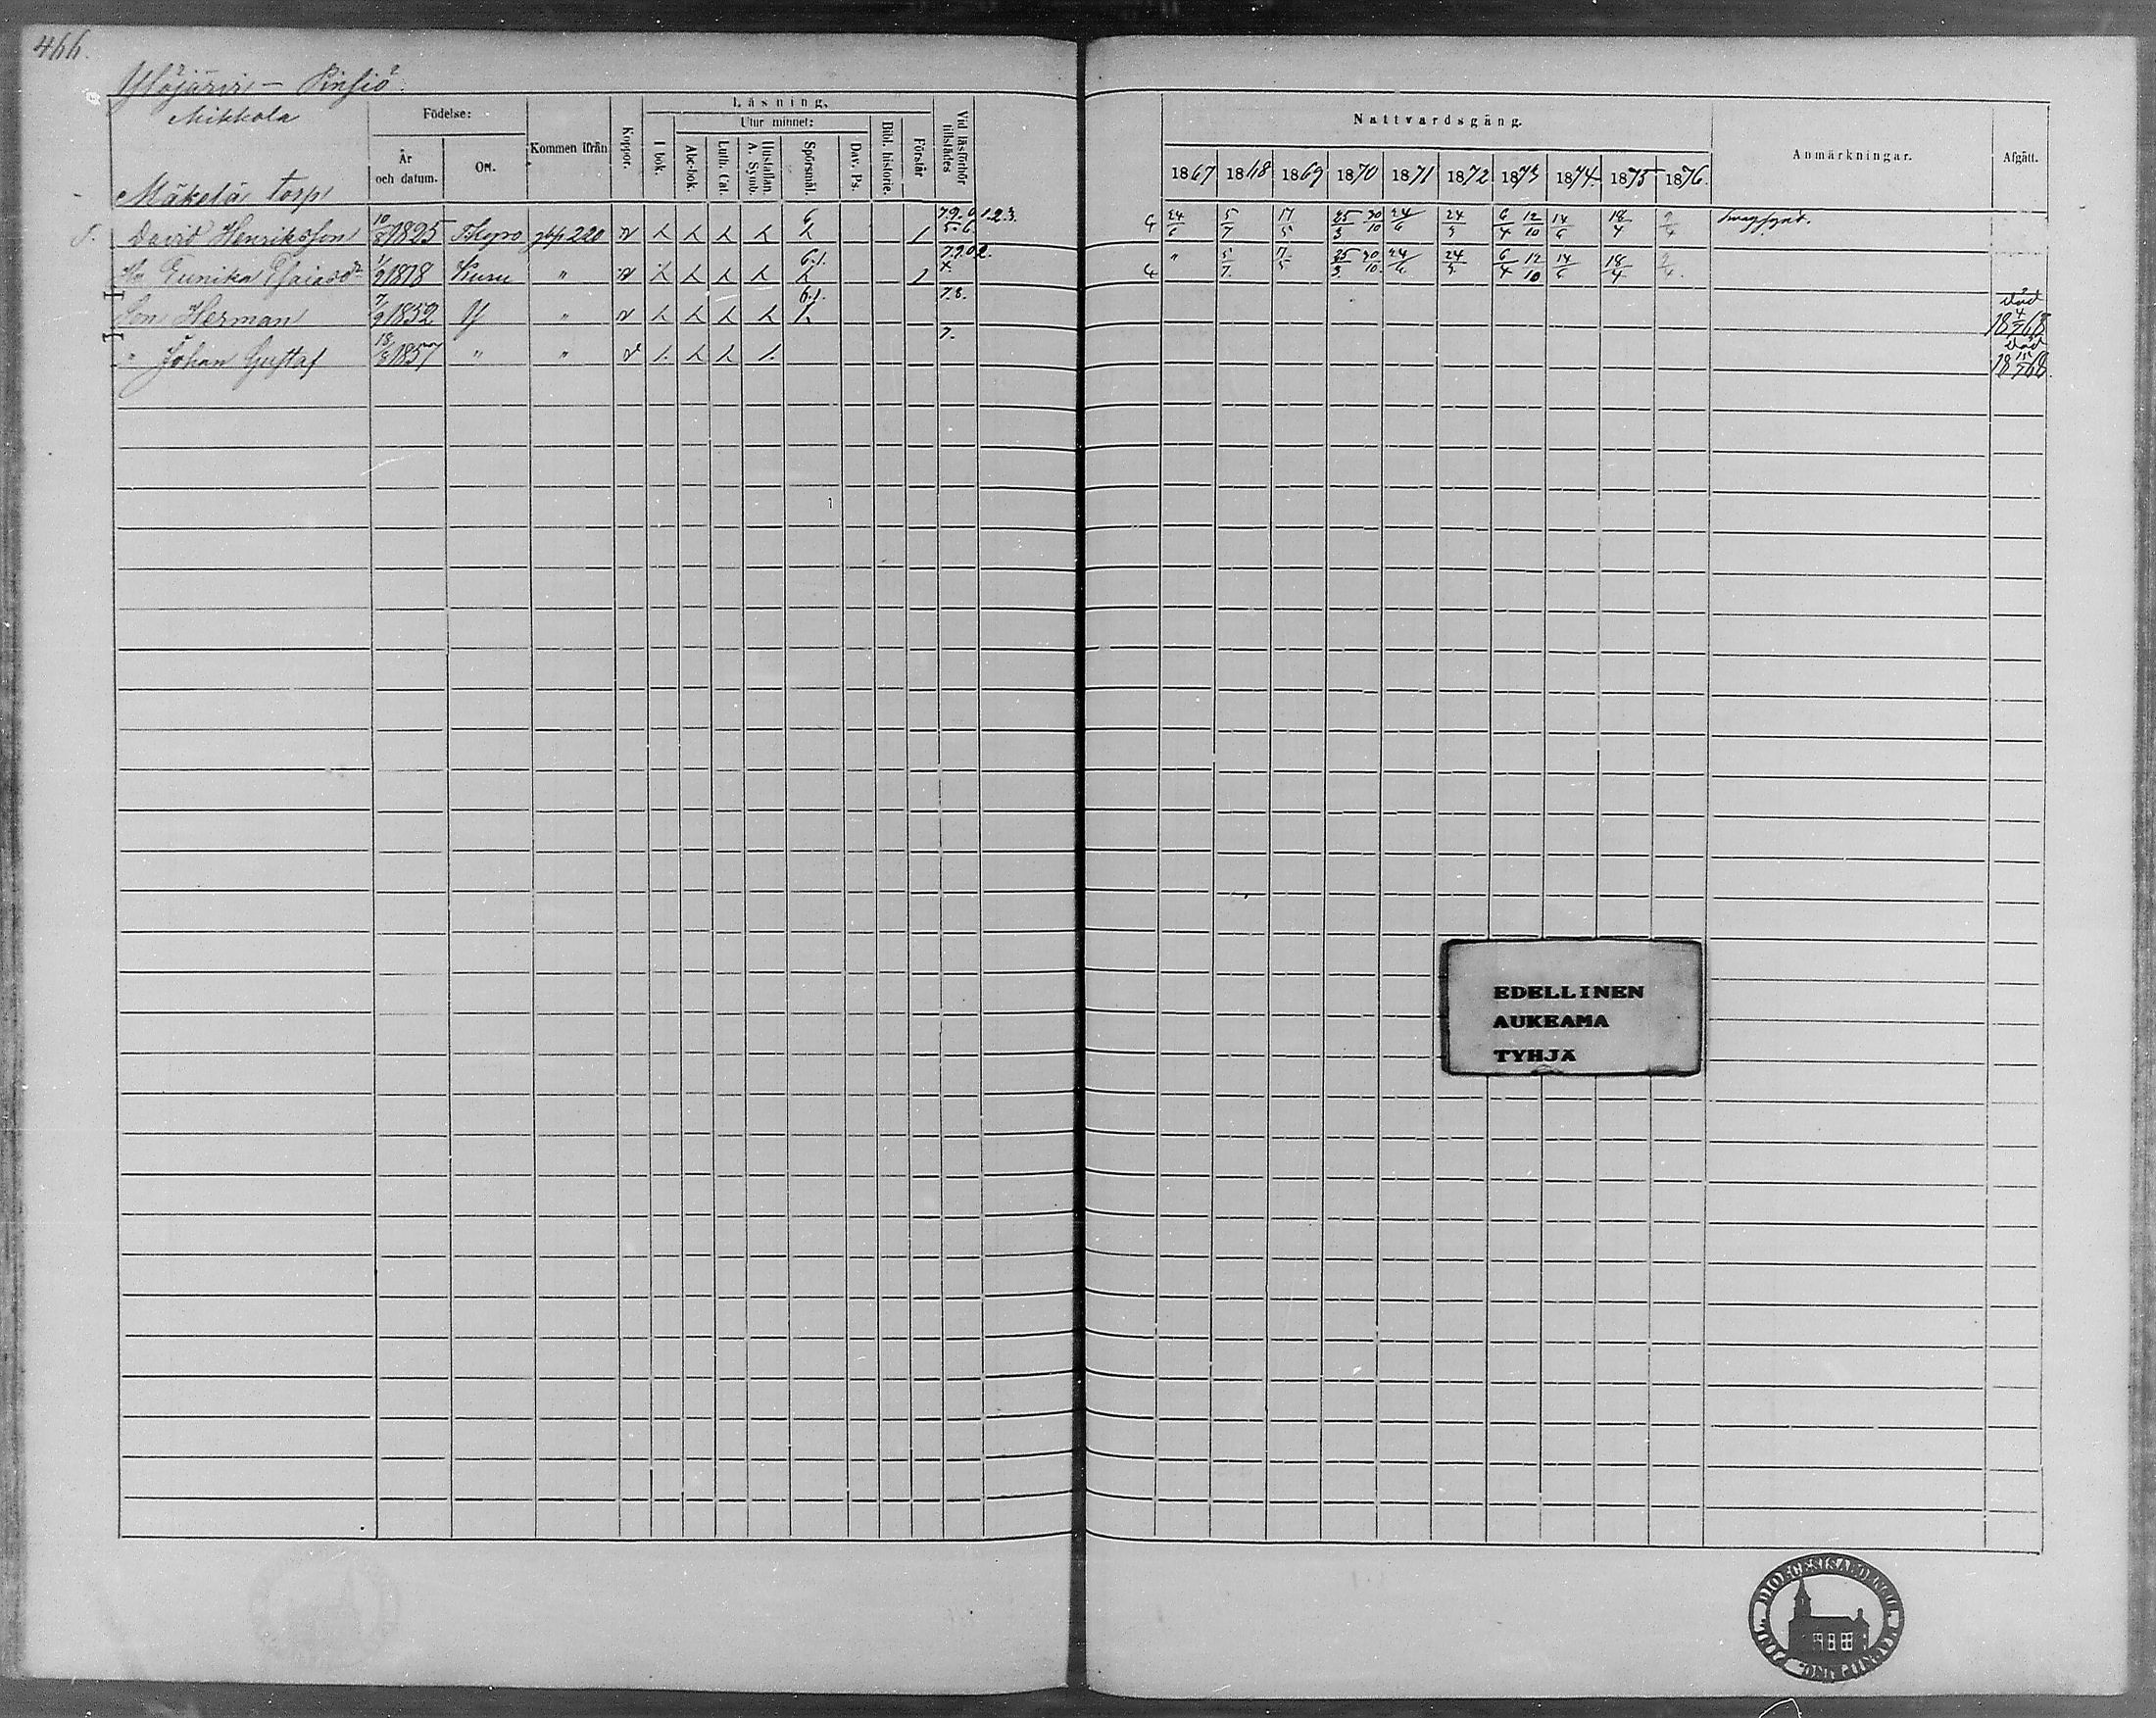 466.
Ylöjärvi — Pinsiö
Mikkola
Mäkelä torp
Födelse:
År och datum.
Ort.
Kommen ifrån
Koppor.
Läsning.
I bok.
Utur minnet:
Abc-bok.
Luth. Cat.
Hustaflan. A. Symb.
Spörsmål.
Dav. Ps.
Bibl. historie.
Förstår
Vid läsförhör tillstädes
Nattvardsgång.
1867 1868 1869 1870 1871 1872 1873 1874 1875 1876.
Anmärkningar.
Afgått.
T. David Henriksson 10/8 1825 Tkyro 220 v 6 1 7.9.0. 1.2.3. 5.6. 24/6 5/7 17/5 25/3 30/10 24/6 24/3 6/4 12/10 14/6 18/4
Eunika 1/9 1818 Kuru " v 6.1. 1 " 5/7. 17/5 25/3. 30/10. 24/6 24/3 6/4 12/10 14/6 18/4.
Son Herman 7/9 1852 Y " v 6.1. 7.8. död 18 4/5 68
" Johan Gustaf 18/3 1857 " " v 7. död 18 15/5 68.
EDELLINEN
AUKEAMA
TYHJÄ